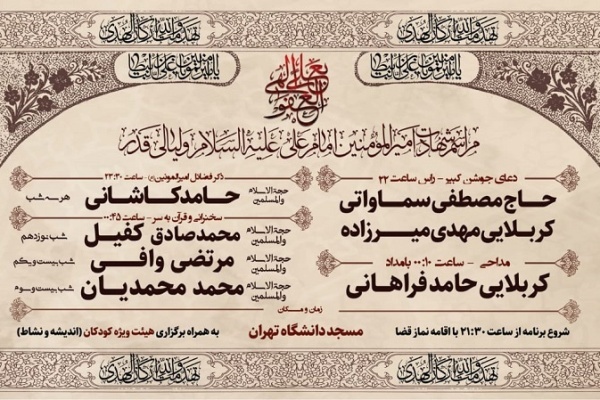 تهدمت والله ارکان الهدی
تهدمت والله ارکان الهدی
مراسم شهادت امیرالمومنین امام علی علیه السلام و لیالی قدر
دعای جوشن کبیر - راس ساعت ۲۲
حاج مصطفی سماواتی
کربلایی مهدی میرزاده
مداحی - ساعت ۰۰:۱۰ بامداد
کربلایی حامد فراهانی
ذکر فضائل امیرالمومنین (ع) - ساعت ۲۳:۳۰
حجة الاسلام والمسلمین حامد کاشانی هر سه شب
سخنرانی و قرآن به سر - ساعت ۰۰:۴۵
حجة الاسلام والمسلمین محمدصادق کفیل شب نوزدهم
حجة الاسلام والمسلمین مرتضی وافی شب بیست و یکم
حجة الاسلام والمسلمین محمد محمدیان شب بیست و سوم
زمان و مکان
شروع برنامه از ساعت ۲۱:۳۰ با اقامه نماز قضا مسجد دانشگاه تهران به همراه برگزاری هیئت ویژه کودکان (اندیشه و نشاط)
تهدمت والله ارکان الهدی
تهدمت والله ارکان الهدی